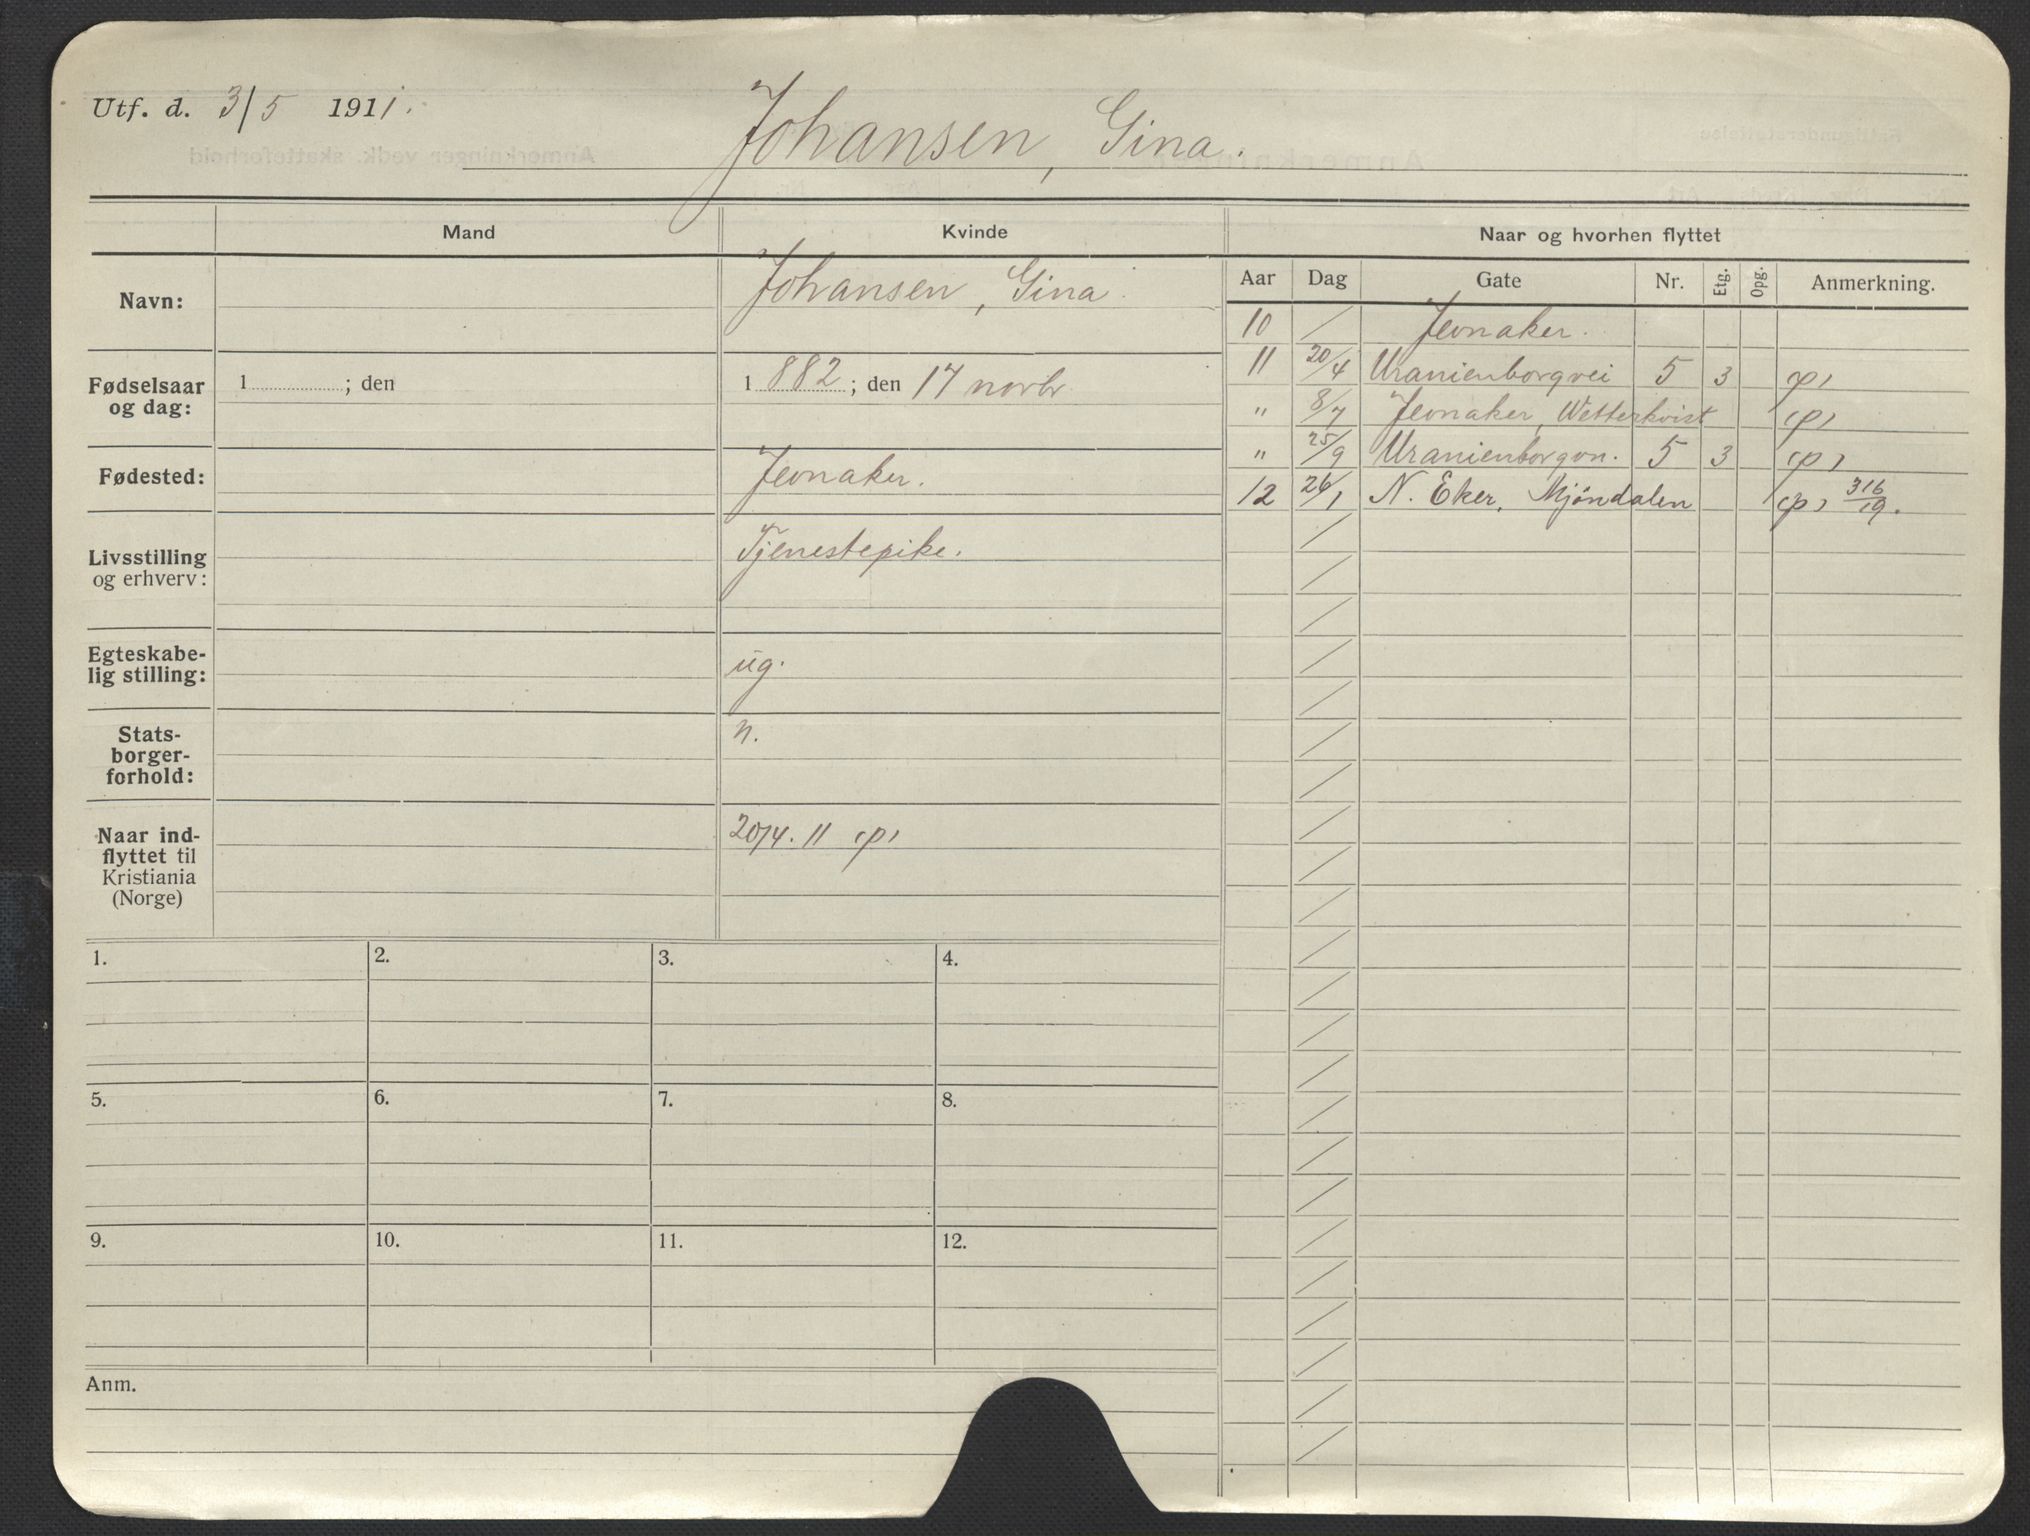 Utf. d. 3/5 1911.
Johansen, Gina.
Mand Kvinde Naar og hvorhen flyttet
Aar Dag Gate Nr. Etg. Opg. Anmerkning.
Navn: Johansen, Gina.
Fødselsaar og dag: 1 ; den 1882; den 17 novbr
Fødested: Jevnaker.
Livsstilling og erhverv: Tjenestepike.
Egteskabe-
lig stilling: ug.
Stats-
borger-
forhold: n.
Naar ind-
flyttet til
Kristiania
(Norge) 20/4. 11 (p)
10 / Jevnaker.
11 20/4 Uranienborgvei 5 3 (p)
" 8/7 Jevnaker, Wetterkvist (p)
" 25/9 Uranienborgv. 5 3 (p)
12 26/1 N. Eker, Mjöndalen (p) 316/19.
1. 2. 3. 4.
5. 6. 7. 8.
9. 10. 11. 12.
Anm.